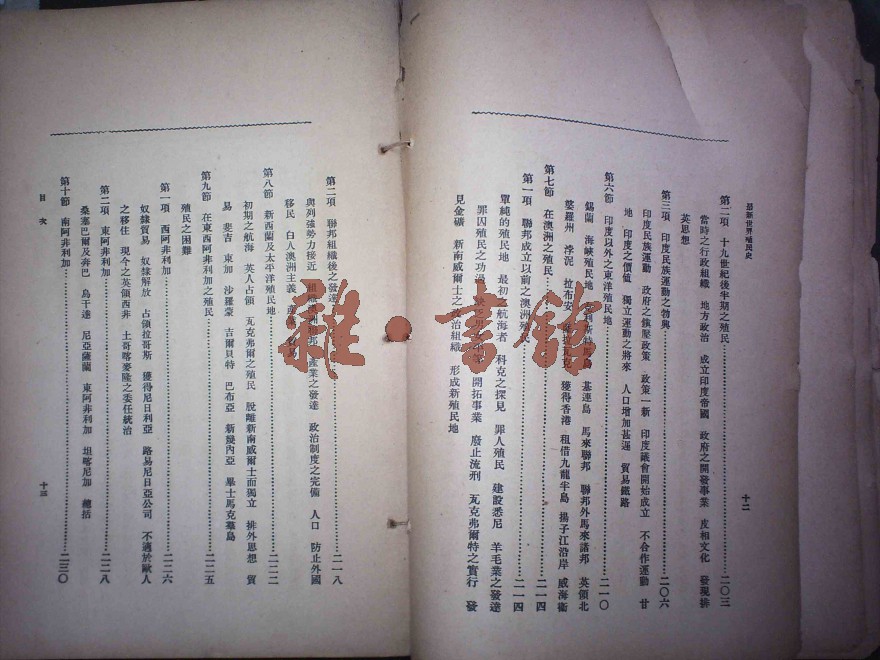 最新世界殖民史
十二
第二項 十九世紀後半期之殖民……二〇三
當時之行政組織 地方政治 成立印度帝國 政府之開發事業 皮相文化 發現排
英思想
第三項 印度民族運動之勃興……二〇六
印度民族運動 政府之鎮壓政策 政策一新 印度議會開始成立 不合作運動 甘
地 印度之價値 獨立運動之將來 人口增加甚遲 貿易鐵路
第六節 印度以外之東洋殖民地……二一〇
錫蘭 海峽殖民地 基連島 馬來聯邦 聯邦外馬來諸邦 英領北
婆羅州 浡泥 拉布安 獲得香港 租借九龍半島 揚子江沿岸 威海衞
第七節 在澳洲之殖民……二一四
第一項 聯邦成立以前之澳洲殖民……二一四
單純的殖民地 最初 航海者 科克之探見 罪人殖民 建設悉尼 羊毛業之發達
罪囚殖民之功過 開拓事業 廢止流刑 瓦克弗爾特之實行 發
見金礦 新南威爾士之政治組織 形成新殖民地
第二項 聯邦組織後之發達……二一八
與列強勢力接近 產業之發達 政治制度之完備 人口 防止外國
移民 白人澳洲主義
第八節 新西蘭及太平洋殖民地……二二二
初期之航海 英人占領 瓦克弗爾之殖民 脫離新南威爾士而獨立 排外思想 貿
易 斐吉 東加 沙羅蒙 吉爾貝特 巴布亞 新幾內亞 畢士馬克羣島
第九節 在東西阿非利加之殖民……二二五
殖民之困難
第一項 西阿非利加……二二六
奴隸貿易 奴隸解放 占領拉哥斯 獲得尼日利亞 路易尼日亞公司 不適於歐人
之移住 現今之英領西非 土哥喀麥隆之委任統治
第二項 東阿非利加……二二八
桑塞巴爾及奔巴 烏干達 尼亞薩蘭 東阿非利加 坦喀尼加 總括
第十節 南阿非利加……二三〇
目次
十三
雜·書館